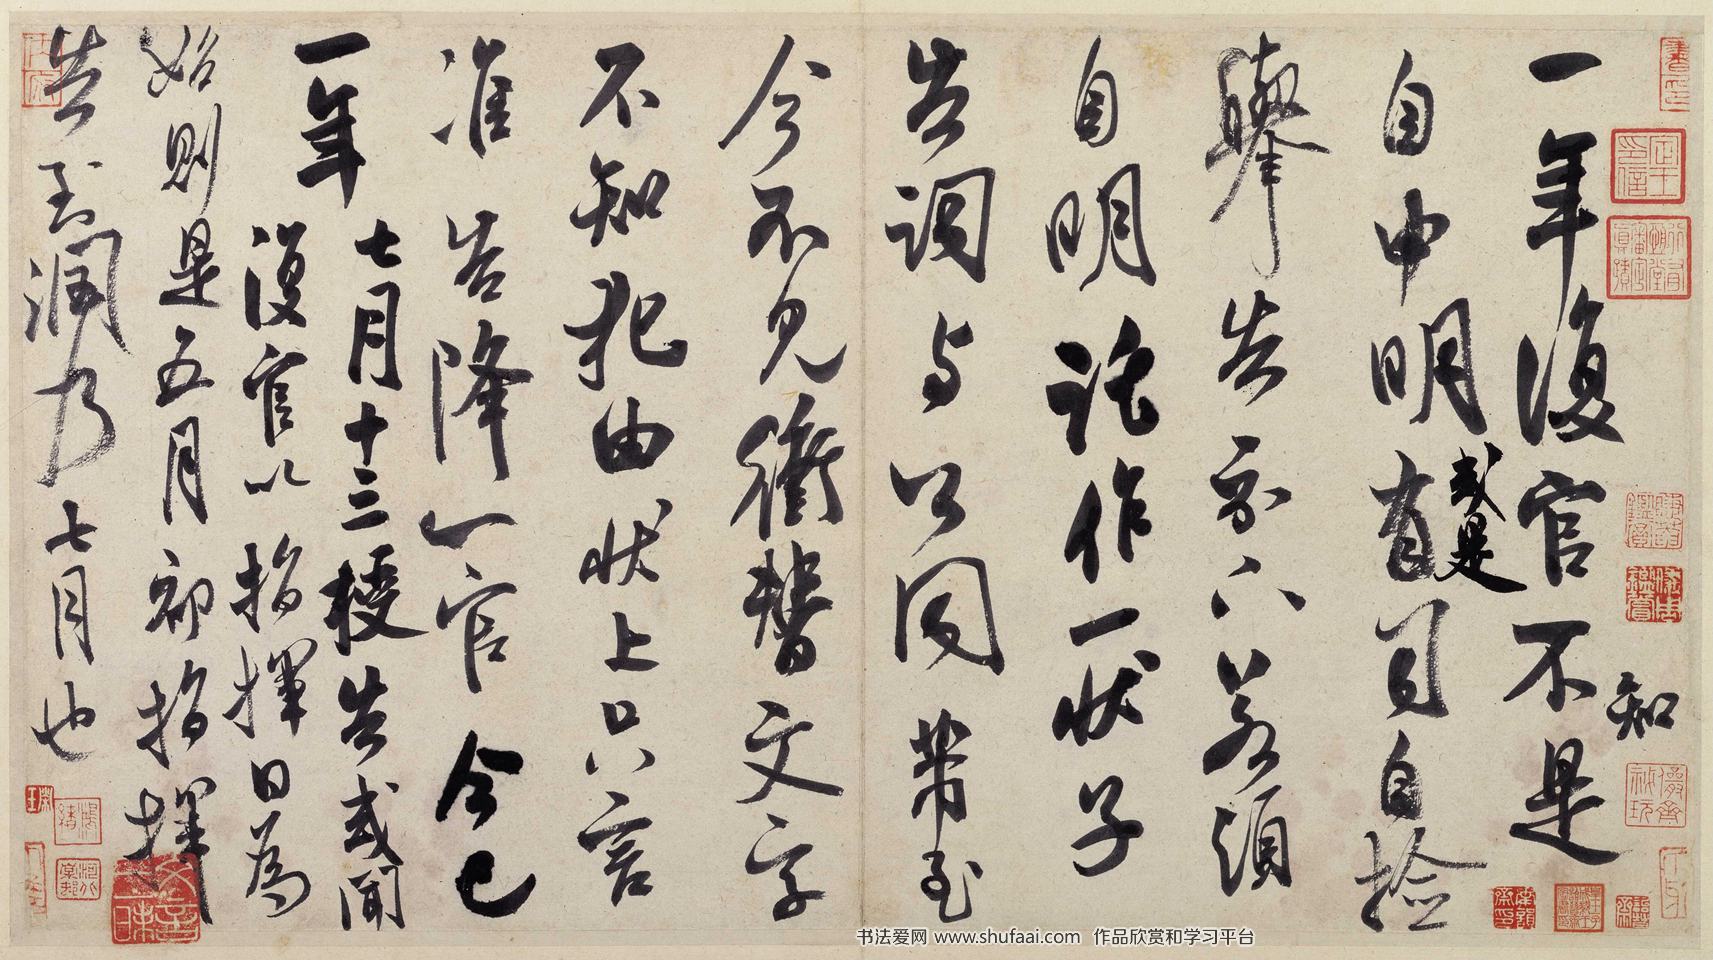 知
一年復官不是
自申明或是有司自檢
舉告示下若須
自明託作一狀子
告詞与公同帶至
今不見衝替文字
不知犯由狀上只言
准告降一官今已
一年七月十三授告或聞
復官以指揮日為
始則是五月初指揮
告至潤乃七月也
书法爱网 www.shufaai.com 作品欣赏和学习平台